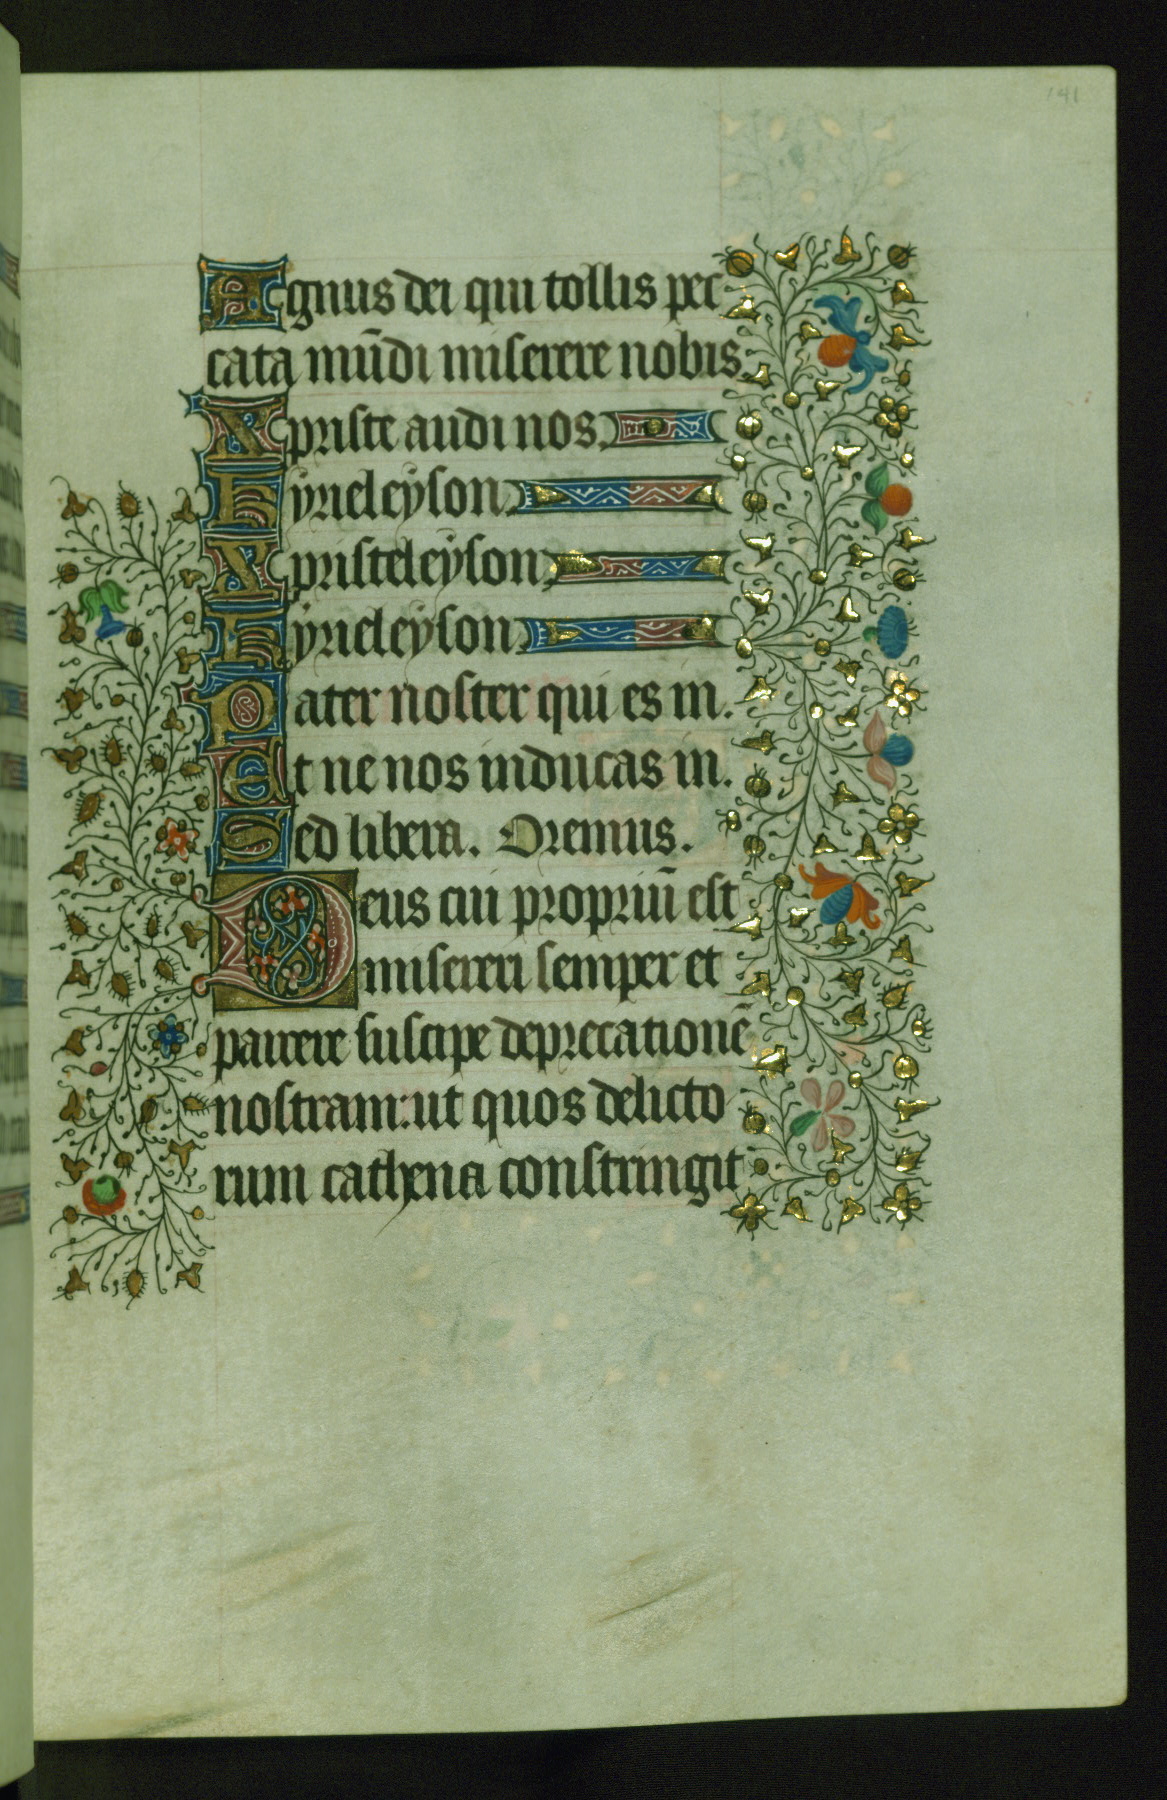 141
Agnus dei qui tollis pec
cata mūdi miserere nobis.
Xpriste audi nos.
Kyrieleyson.
Xpristeleyson.
Kyrieleyson.
Pater noster qui es in.
Et ne nos inducas in.
Sed libera. Oremus.
Deus cui propriū est
misereri semper et
parcere suscipe deprecationē
nostram: ut quos delicto
rum cathena constringit